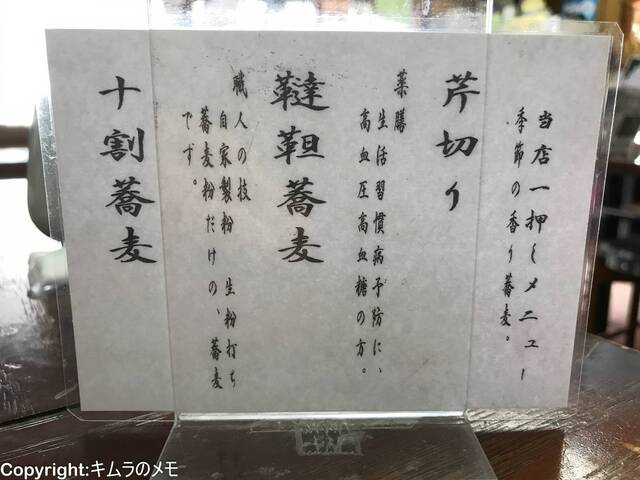 当店一押しメニュー
季節の香り蕎麦。
芹切り
薬膳 生活習慣病予防に、
高血圧高血糖の方。
韃靼蕎麦
職人の技 生粉打ち
自家製粉 蕎麦
蕎麦粉だけの、
です。
十割蕎麦
Copyright:キムラのメモ